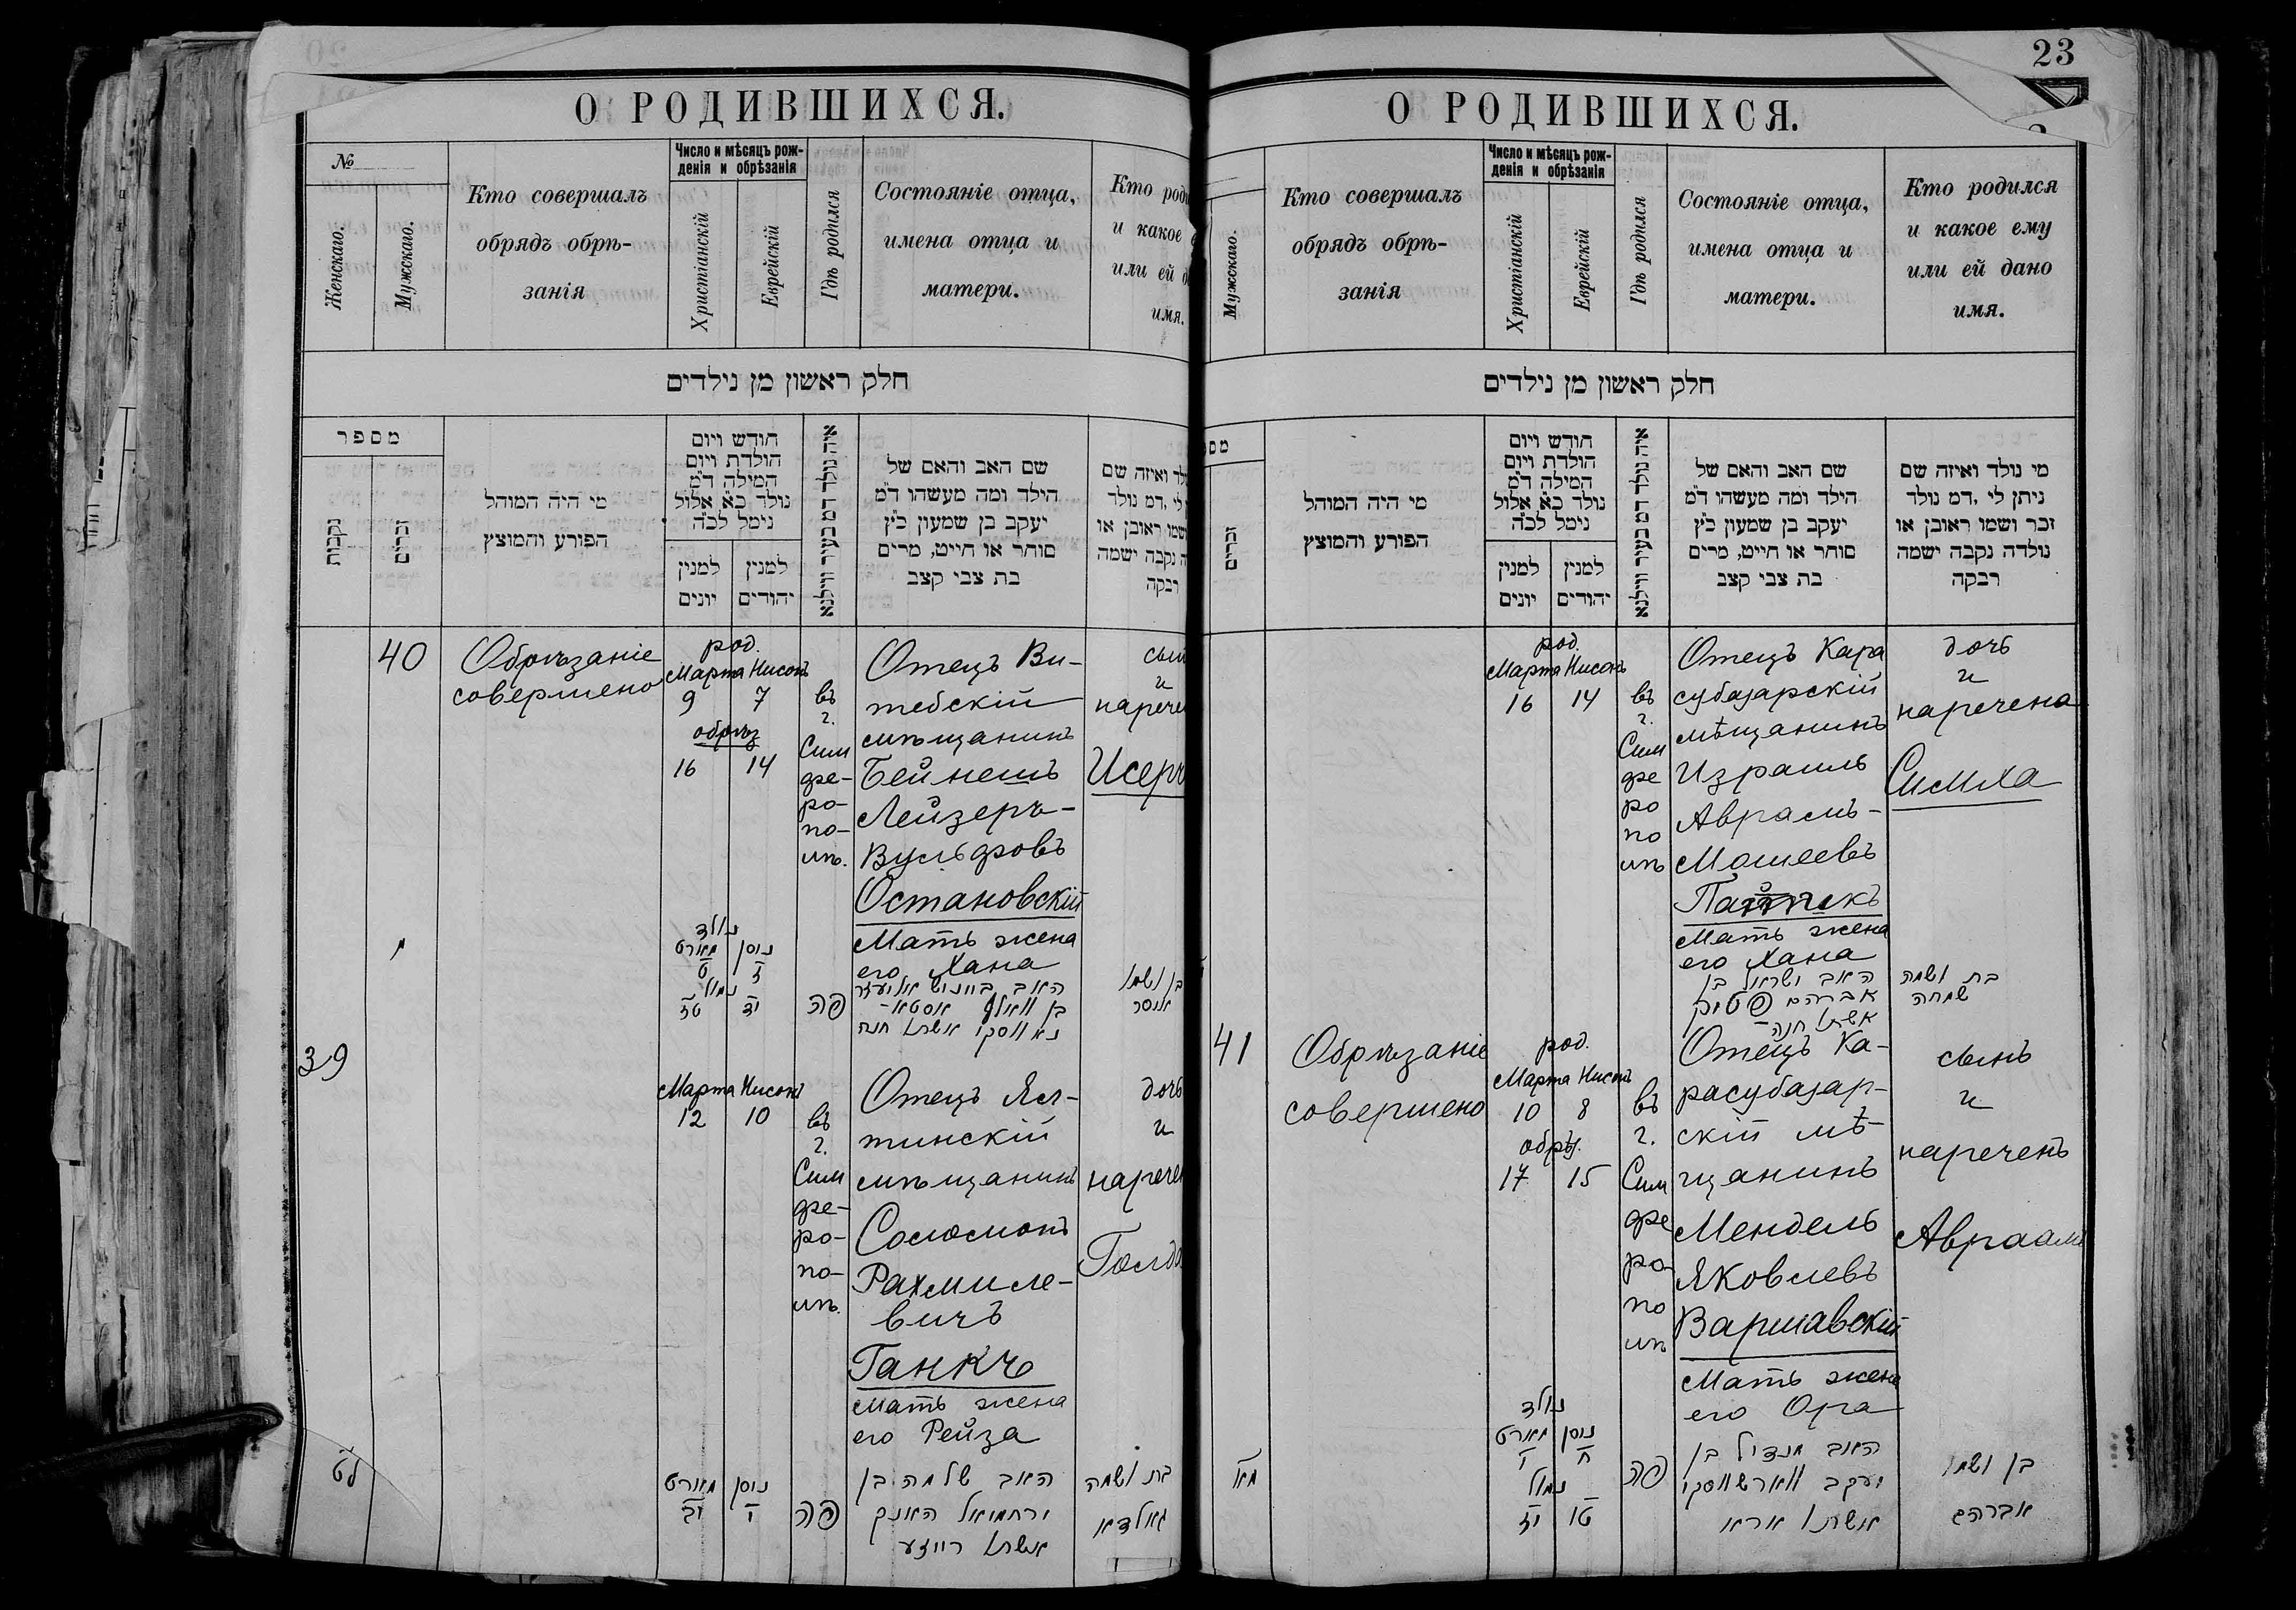 О РОДИВШИХСЯ.
№
Женскаго.
Мужскаго.
Кто совершалъ
обрядъ обрѣ-
занія
Число и мѣсяцъ рож-
денія и обрѣзанія
Христіанскій
Еврейскій
Гдѣ родился
Состояніе отца,
имена отца и
матери.
Кто
и какое
или ей
имя.
חלק ראשון מן נילדים
מספר
נקבות
זכרים
מי היה המוהל
הפורע והמוצץ
חודש ויום
הולדת ויום
המילה ד״מ
נולד כ״א אלול
נימל לכ״ה
למנין
יונים
למנין
יהודים
איה נולד דמ בעיר ווילנא
שם האב והאם של
הילד ומה מעשהו ד״מ
יעקב בן שמעון כ״ץ
סוחר או חייט, מרים
בת צבי קצב
ואיזה שם
לי ,דמ נולד
ושמו ראובן או
נקבה ישמה
רבקה
40
Обрѣзаніе
совершено
род.
Марта Нисонъ
9 7
обрѣз
16 14
въ
г.
Сим
фе-
ро-
по-
лѣ.
Отецъ Ви-
тебскій
мѣщанинъ
Бейнешъ
Лейзеръ-
Вульфовъ
Остановскій
Мать жена
его Хана
сын
и
нарече
Исеръ
נולד
מארט ניסן
ט ז
נמול
טז יד
פה
האב ביינוש אליעזר
בן וואלף אסטא-
נאווסקי אשתו חנה
בן ושמו
איסר
39
Марта Нисонъ
12 10
въ
г.
Сим
фе-
ро-
по-
лѣ.
Отецъ Ял-
тинскій
мѣщанинъ
Соломонъ
Рахмиле-
вичъ
Ганкъ
Мать жена
его Рейза
дочь
и
нарече
Голда
לט
מארט ניסן
יב י
פה
האב שלמה בן
ירחמיאל האנק
אשתו רייזע
בת ושמה
גאלדא
23
О РОДИВШИХСЯ.
Мужскаго.
Кто совершалъ
обрядъ обрѣ-
занія
Число и мѣсяцъ рож-
денія и обрѣзанія
Христіанскій
Еврейскій
Гдѣ родился
Состояніе отца,
имена отца и
матери.
Кто родился
и какое ему
или ей дано
имя.
חלק ראשון מן נילדים
מס
זכרים
מי היה המוהל
הפורע והמוצץ
חודש ויום
הולדת ויום
המילה ד״מ
נולד כ״א אלול
נימל לכ״ה
למנין
יונים
למנין
יהודים
איה נולד דמ בעיר ווילנא
שם האב והאם של
הילד ומה מעשהו ד״מ
יעקב בן שמעון כ״ץ
סוחר או חייט, מרים
בת צבי קצב
מי נולד ואיזה שם
ניתן לי ,דמ נולד
זכר ושמו ראובן או
נולדה נקבה ישמה
רבקה
род.
Марта Нисонъ
16 14
въ
г.
Сим
фе
ро
по
лѣ
Отецъ Кара
субазарскій
мѣщанинъ
Израиль
Аврамъ-
Мошеевъ
Мать жена
его Хана
дочь
и
наречена
Симха
האב ישראל בן
אברהם
אשתו חנה
בת ושמה
שמחה
41
Обрѣзаніе
совершено
род.
Марта Нисонъ
10 8
обрѣз.
17 15
въ
г.
Сим
фе
ро-
по
лѣ
Отецъ Ка-
расубазар-
скій мѣ-
щанинъ
Мендель
Яковлевъ
Варшавскій
Мать жена
его Ора
сынъ
и
нареченъ
Авраамъ
מא
נולד
מארט ניסן
י ח
נמול
יז טו
פה
האב מנדיל בן
יעקב ווארשווסקי
אשתו ארא
בן ושמו
אברהם